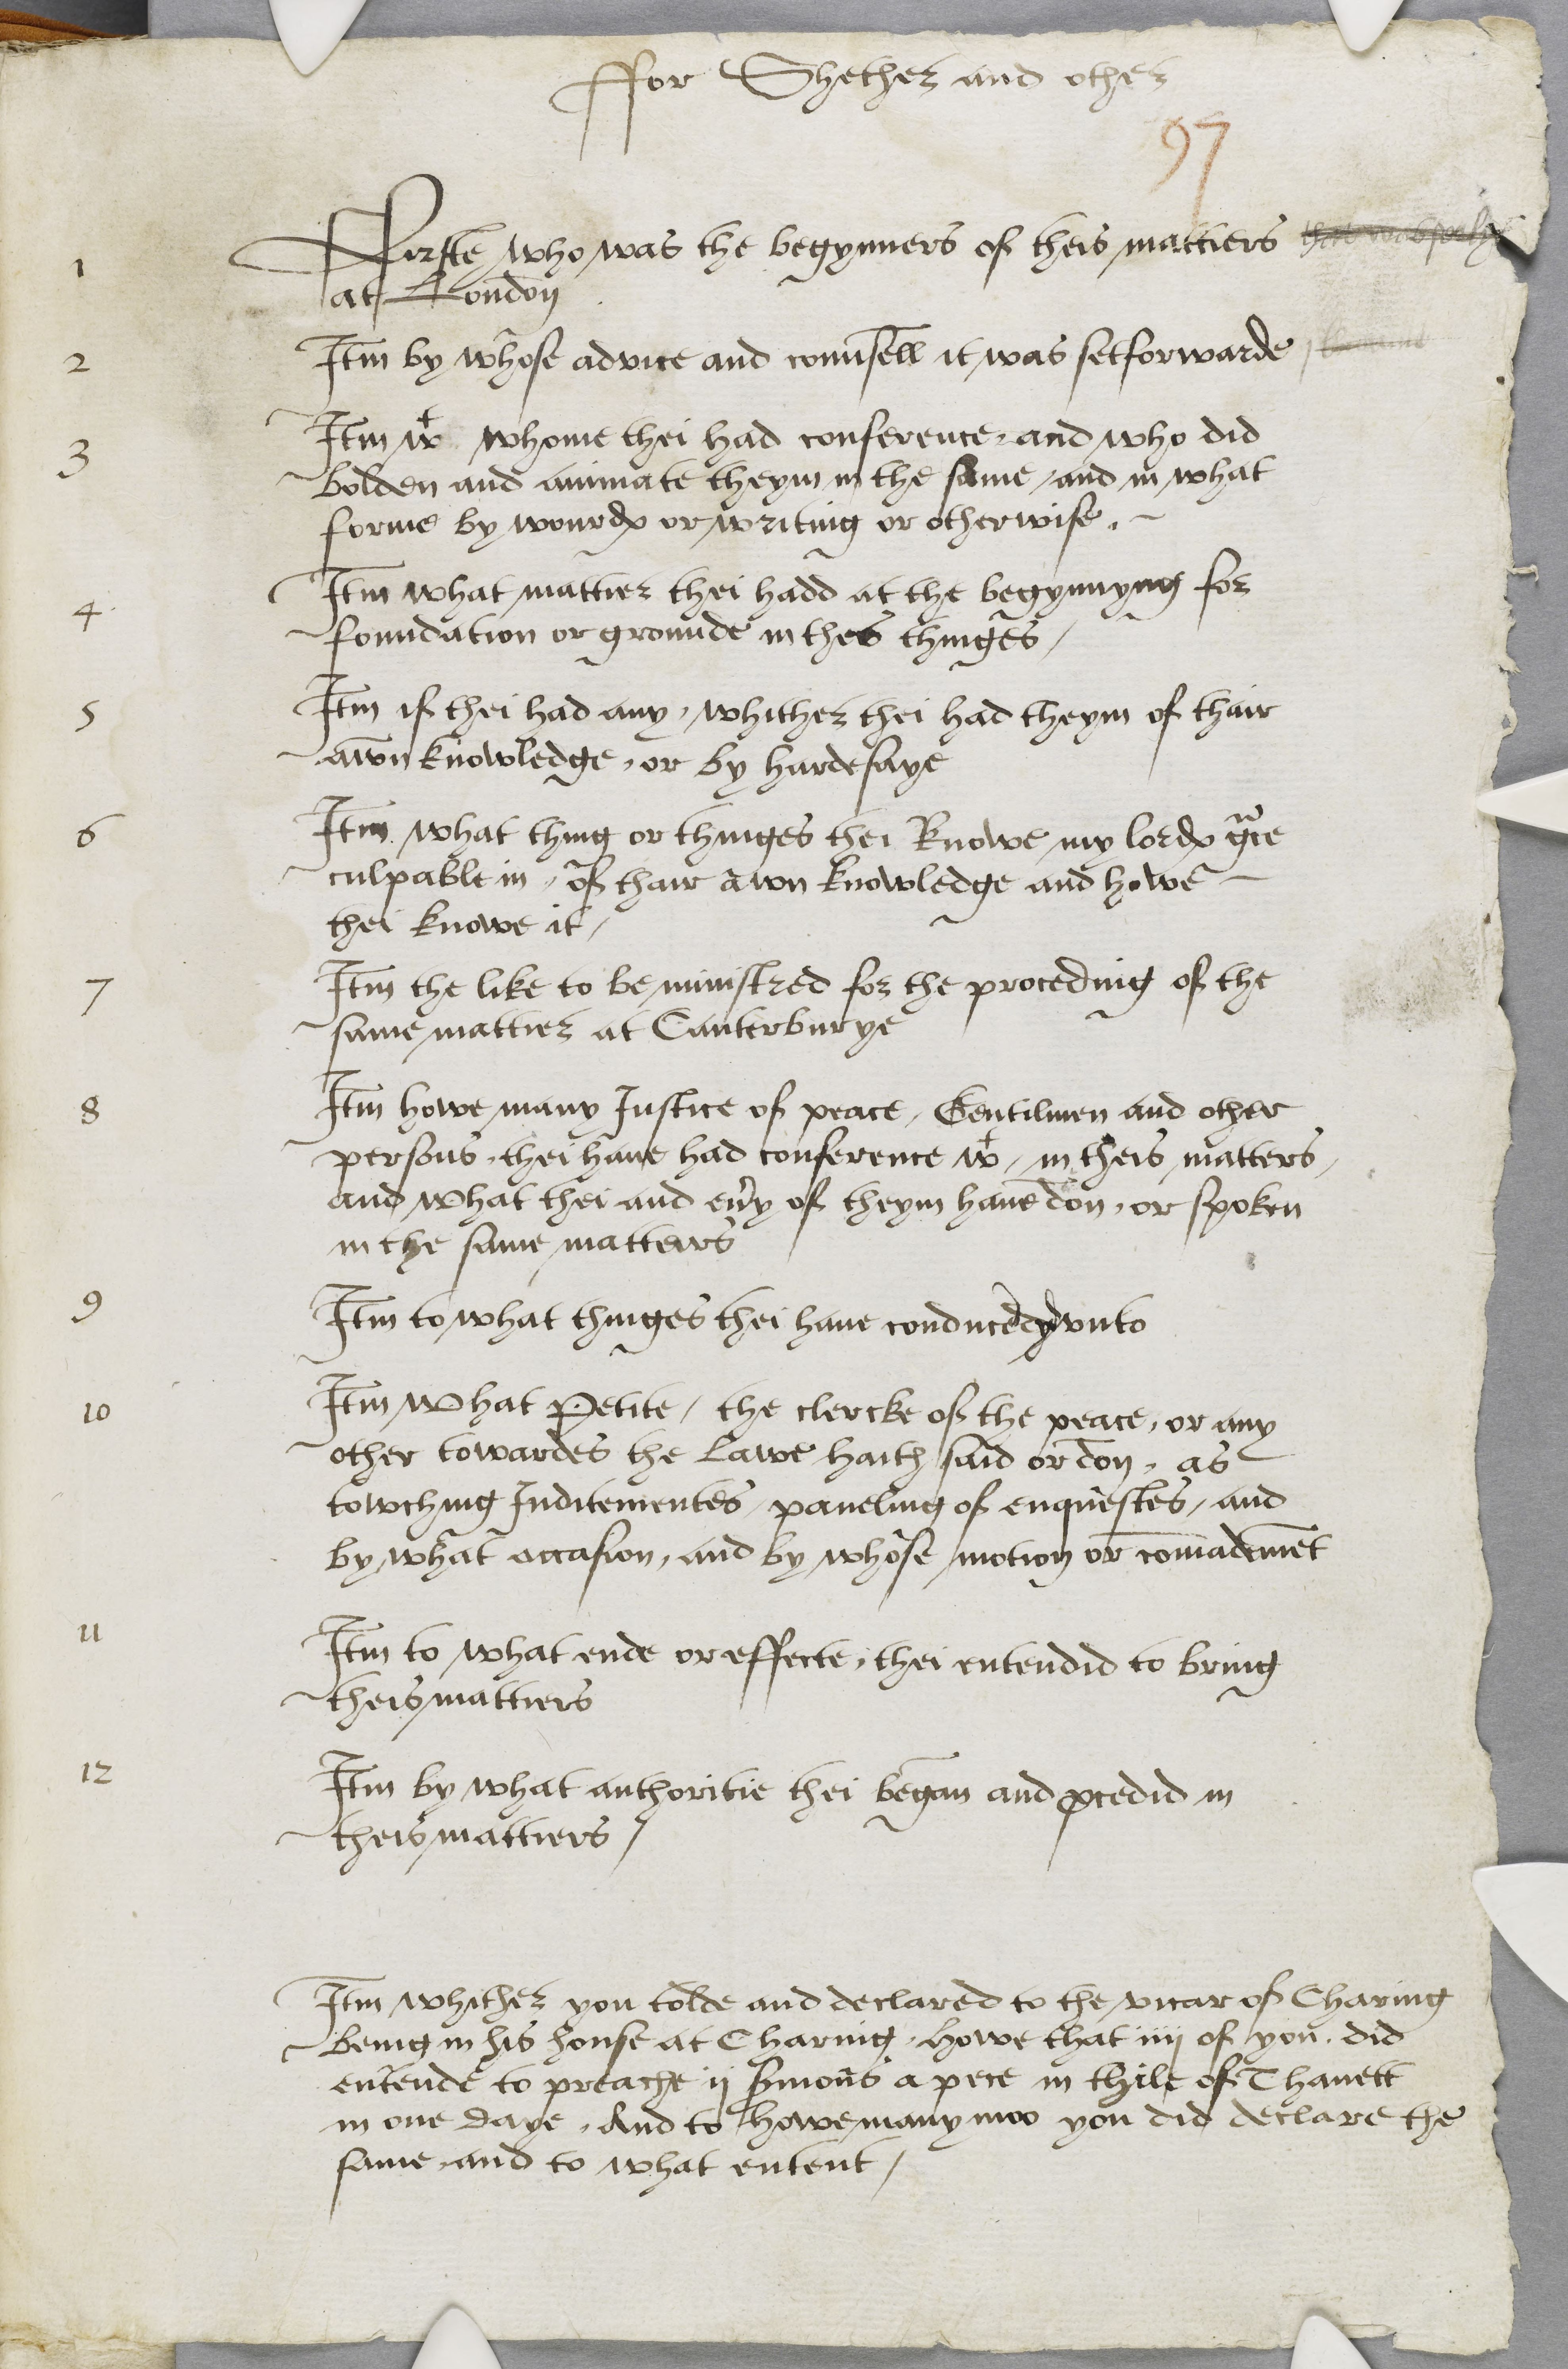 ffor Shether and other
97
1 Firste who was the begynners of theis mattiers
at London
2 Itm by whose advice and counsell it was setforwarde
3 Itm wt whome thei had conference, and who did
bolden and animate theym in the same, and in what
forme by wourdes or writing or otherwise.
4 Itm what mattier thei hadd at the begynnyng for
foundation or grounde in thes thinges /
5 Itm if thei had any, whither thei had theym of thair
awn knowledge, or by hardesaye
6 Itm what thing or thinges thei knowe my lordes gce
culpable in, of thair awn knowledge and howe
thei knowe it /
7 Itm the like to be ministred for the proceding of the
same mattier at Canterburye
8 Itm howe many Justice of peace, Gentilmen and other
persons, thei have had conference wt, in theis matters,
and what thei and evry of theym have don, or spoken
in the same matters
9 Itm to what thinges thei have conduced unto
10 Itm what Petite, the clercke of the peace, or any
other towardes the Lawe haith said or don, as
towching Inditementes, paneling of enquestes, and
by what occasion, and by whose motion or comādemēt
11 Itm to what ende or effecte, thei entendid to bring
theis mattiers
12 Itm by what authoritie thei began and pcedid in
theis mattiers /
Itm whither you tolde and declared to the vicar of Charing
being in his house at Charing, howe that iiij of you, did
entende to preache ij smons a pece in thile of Thanett
in one daye, And to howe many moo you did declare the
same, and to what entent /